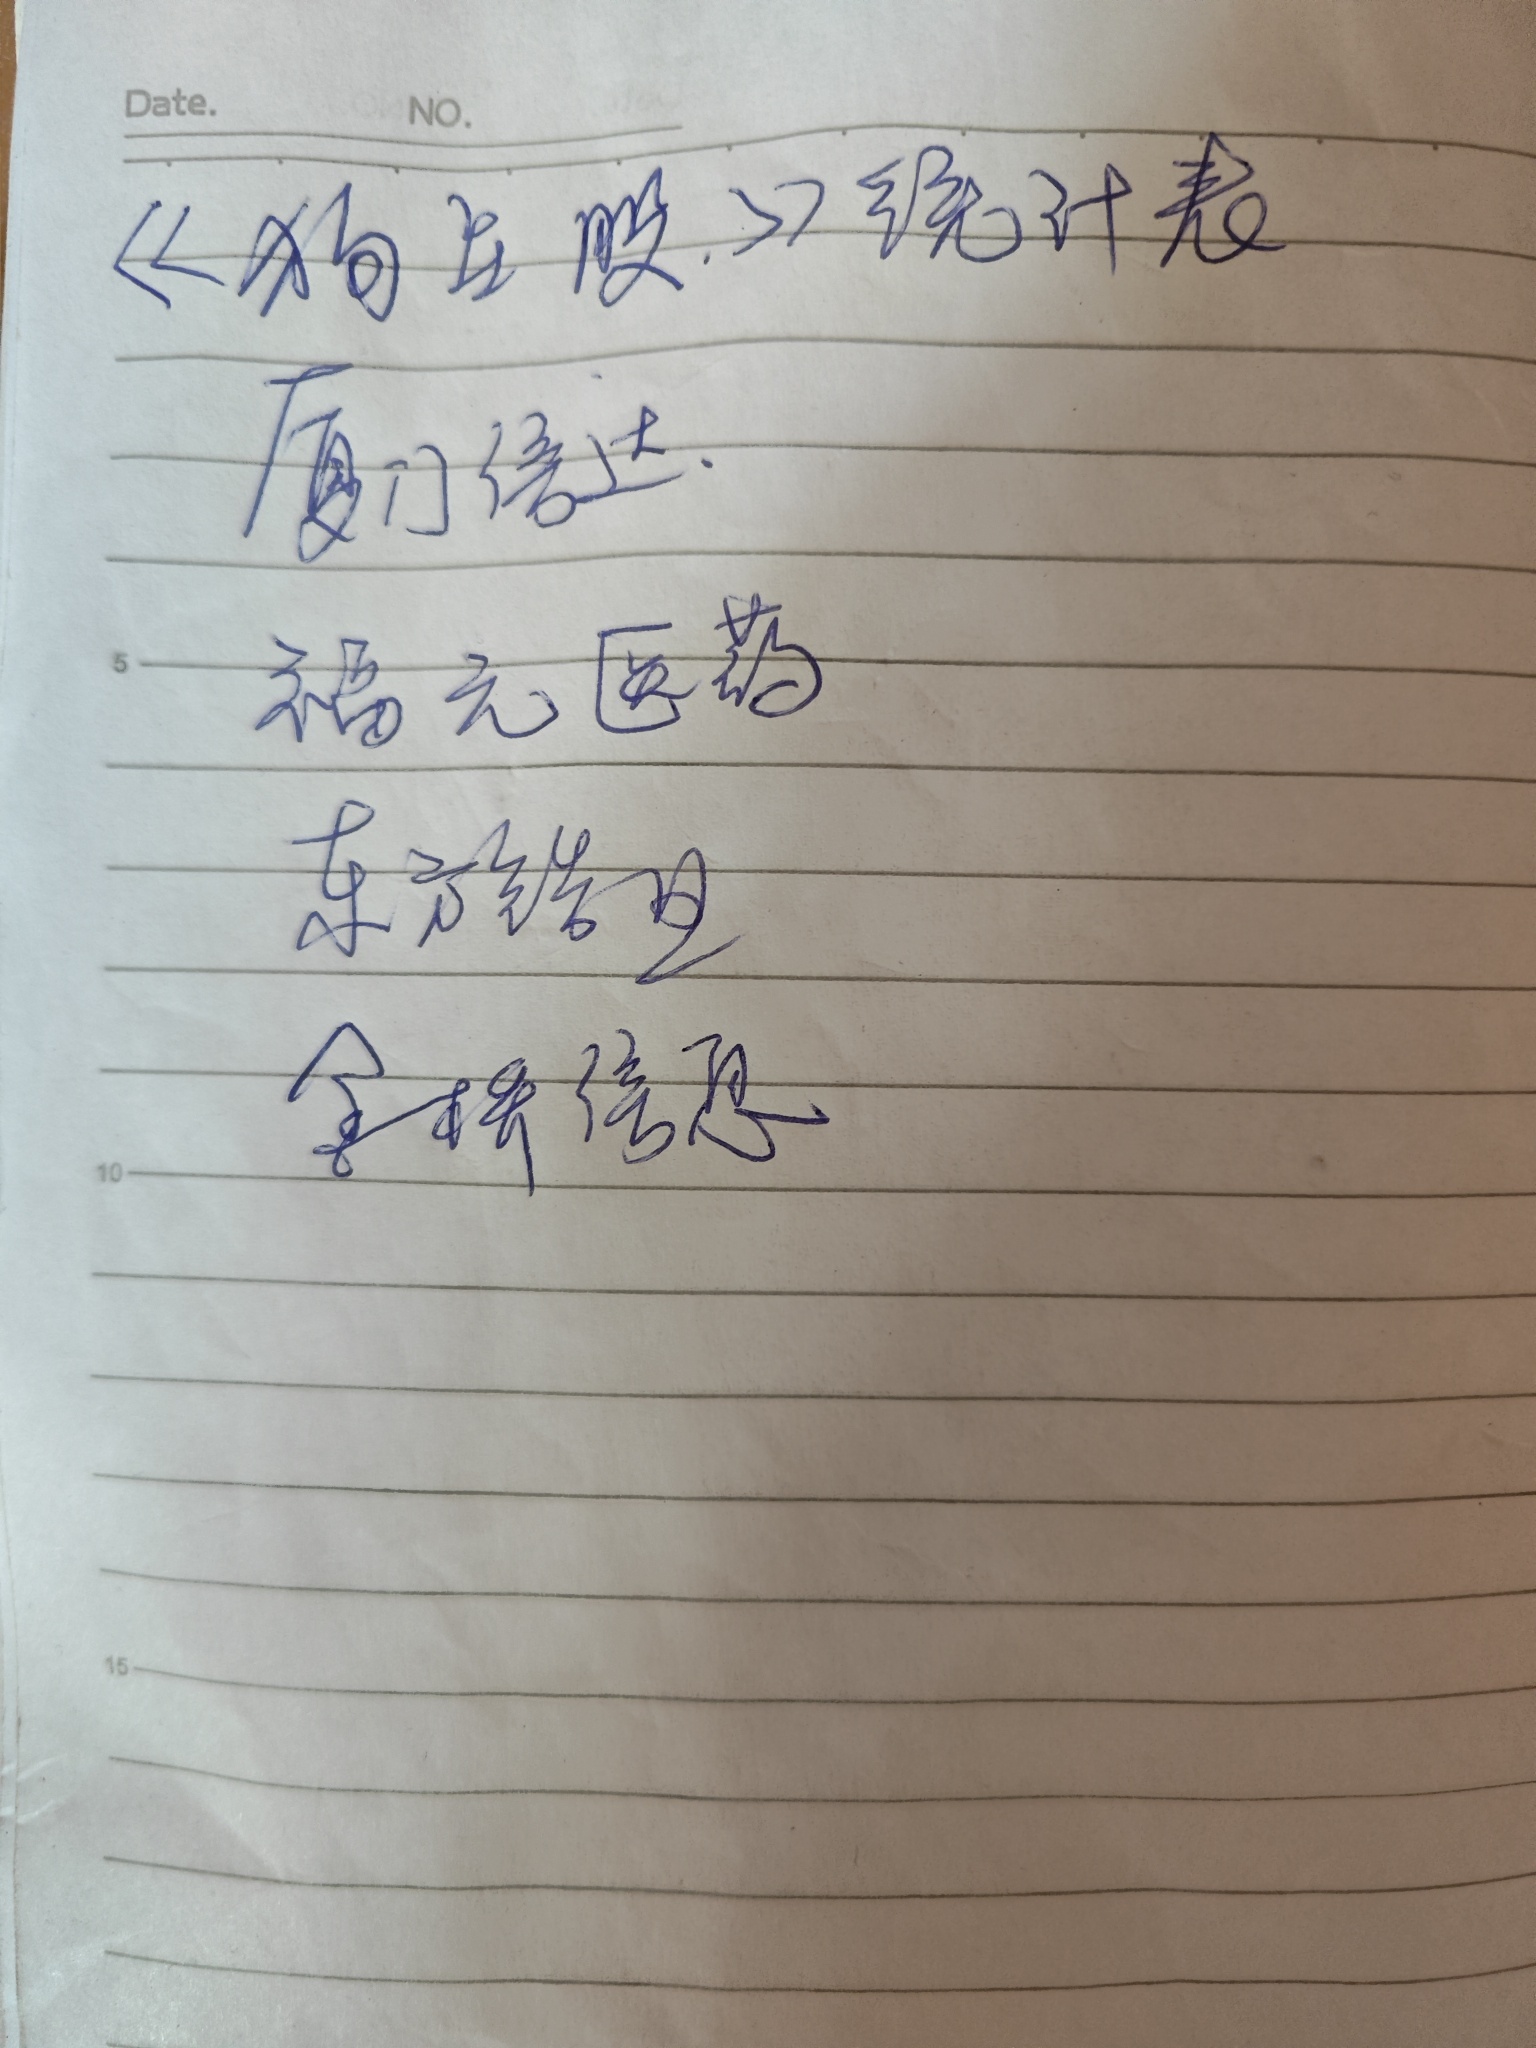 Date. NO.
《狗庄股.》统计表
厦门信达.
福元医药
5
东方锆业
金桥信息
10
15